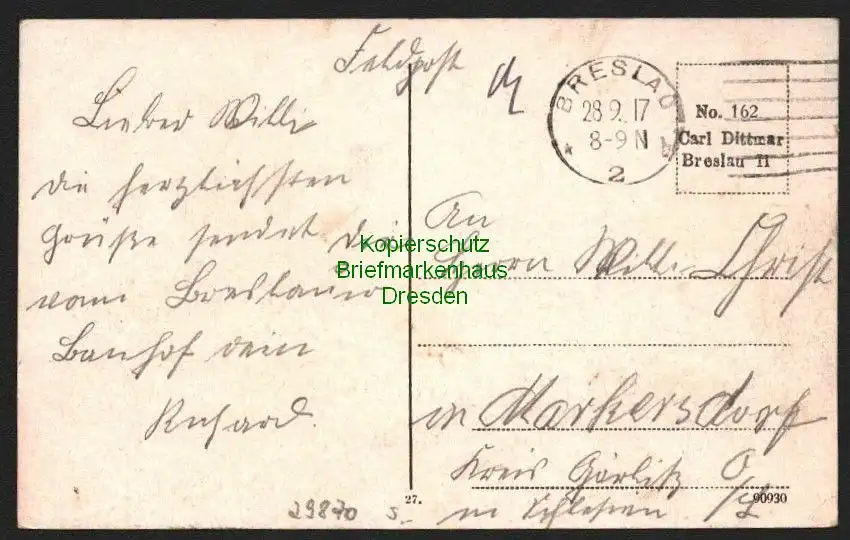 Feldpost
BRESLAU
28 9. 17
8-9 N
* 2
No. 162
Carl Dittmar
Breslau II
Lieber Willi
die herzlichsten
Grüße sendet dir
vom Breslauer
Banhof dein
Richard.
An
Herrn Willi Christ
in Markersdorf
Kreis Görlitz O/L
in Schlesien
Kopierschutz
Briefmarkenhaus
Dresden
27.
90930
29870 s-